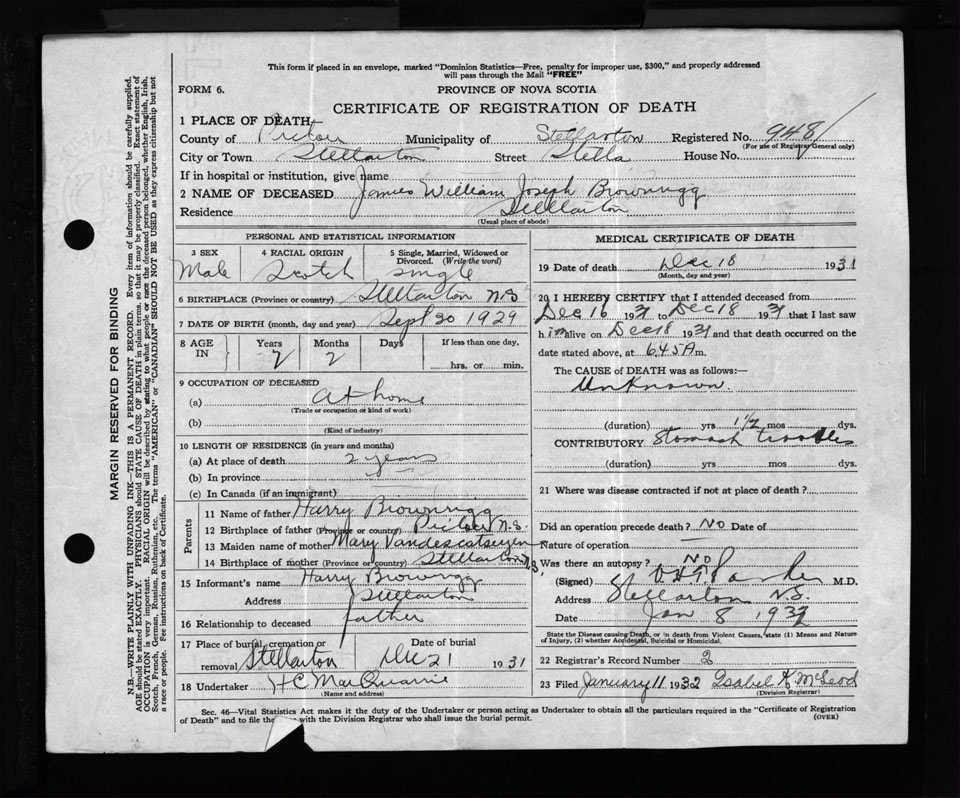 This form if placed in an envelope, marked "Dominion Statistics—Free, penalty for improper use, $300," and properly addressed
will pass through the Mail "FREE"
FORM 6.
PROVINCE OF NOVA SCOTIA
CERTIFICATE OF REGISTRATION OF DEATH
1 PLACE OF DEATH
County of Pictou Municipality of Stellarton Registered No. 948
(For use of Registrar General only)
City or Town Stellarton Street Stella House No.
If in hospital or institution, give name
2 NAME OF DECEASED James William Joseph Brownrigg
Residence Stellarton
(Usual place of abode)
PERSONAL AND STATISTICAL INFORMATION
3 SEX Male
4 RACIAL ORIGIN Scotch
5 Single, Married, Widowed or Divorced. (Write the word) single
6 BIRTHPLACE (Province or country) Stellarton N.S
7 DATE OF BIRTH (month, day and year) Sept 30 1929
8 AGE IN Years 2 Months 2 Days If less than one day, hrs. or min.
9 OCCUPATION OF DECEASED
(a) At home
(Trade or occupation or kind of work)
(b)
(Kind of industry)
10 LENGTH OF RESIDENCE (in years and months)
(a) At place of death 2 years
(b) In province
(c) In Canada (if an immigrant)
Parents
11 Name of father Harry Brownrigg
12 Birthplace of father (Province or country) Pictou N.S.
13 Maiden name of mother Mary
14 Birthplace of mother (Province or country) Stellarton N.S.
15 Informant's name Harry Brownrigg
Address Stellarton
16 Relationship to deceased father
17 Place of burial, cremation or removal Stellarton Date of burial Dec 21 1931
18 Undertaker H C MacQuarrie
(Name and address)
MEDICAL CERTIFICATE OF DEATH
19 Date of death Dec 18 1931
(Month, day and year)
20 I HEREBY CERTIFY that I attended deceased from
Dec 16 1931 to Dec 18 1931 that I last saw
him alive on Dec 18 1931 and that death occurred on
date stated above, at 6.45 A m.
The CAUSE of DEATH was as follows:—
Unknown
(duration) yrs 1/2 mos dys.
CONTRIBUTORY Stomach troubles
(duration) yrs mos dys.
21 Where was disease contracted if not at place of death?
Did an operation precede death? No Date of
Nature of operation —
Was there an autopsy? No
(Signed) Parker M.D.
Address Stellarton N.S.
Date Jan 8 1932
State the Disease causing Death, or in death from Violent Causes, state (1) Means and Nature
of Injury, (2) whether Accidental, Suicidal or Homicidal.
22 Registrar's Record Number 2
23 Filed January 11 1932 Isabel K McLeod
(Division Registrar)
Sec. 46—Vital Statistics Act makes it the duty of the Undertaker or person acting as Undertaker to obtain all the particulars required in the "Certificate of Registration
of Death" and to file the with the Division Registrar who shall issue the burial permit.
(OVER)
MARGIN RESERVED FOR BINDING
N.B.—WRITE PLAINLY WITH UNFADING INK—THIS IS A PERMANENT RECORD. Every item of information should be carefully supplied.
AGE should be stated EXACTLY. PHYSICIANS should STATE CAUSE OF DEATH in plain terms, so that it may be properly classified. Exact statement of
OCCUPATION is very important. RACIAL ORIGIN will be described by stating to what people or race the deceased person belonged, whether English, Irish,
Scotch, French, German, Russian, Ruthenian, etc. The terms "AMERICAN" or "CANADIAN" SHOULD NOT BE USED as they express citizenship but not
a race or people. See instructions on back of Certificate.